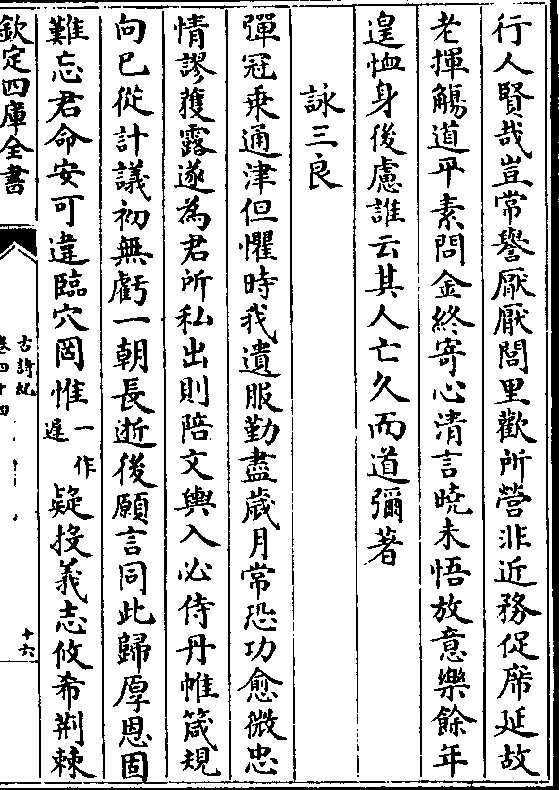 行人賢哉豈常譽厭厭閭里歡所營非近務促席延故
老揮觴道平素問金終寄心清言曉未悟放意樂餘年
遑恤身後慮誰云其人亡久而道彌著
詠三良
彈冠乗通津但懼時我遺服勤盡歲月常恐功愈微忠
情謬獲露遂為君所私出則陪文輿入必侍丹帷箴規
向已從計議初無虧一朝長逝後願言同此歸厚恩固
難忘君命安可違臨穴罔惟一作遲疑投義志攸希荆棘
欽定四庫全書
古詩紀
卷四十四
十六